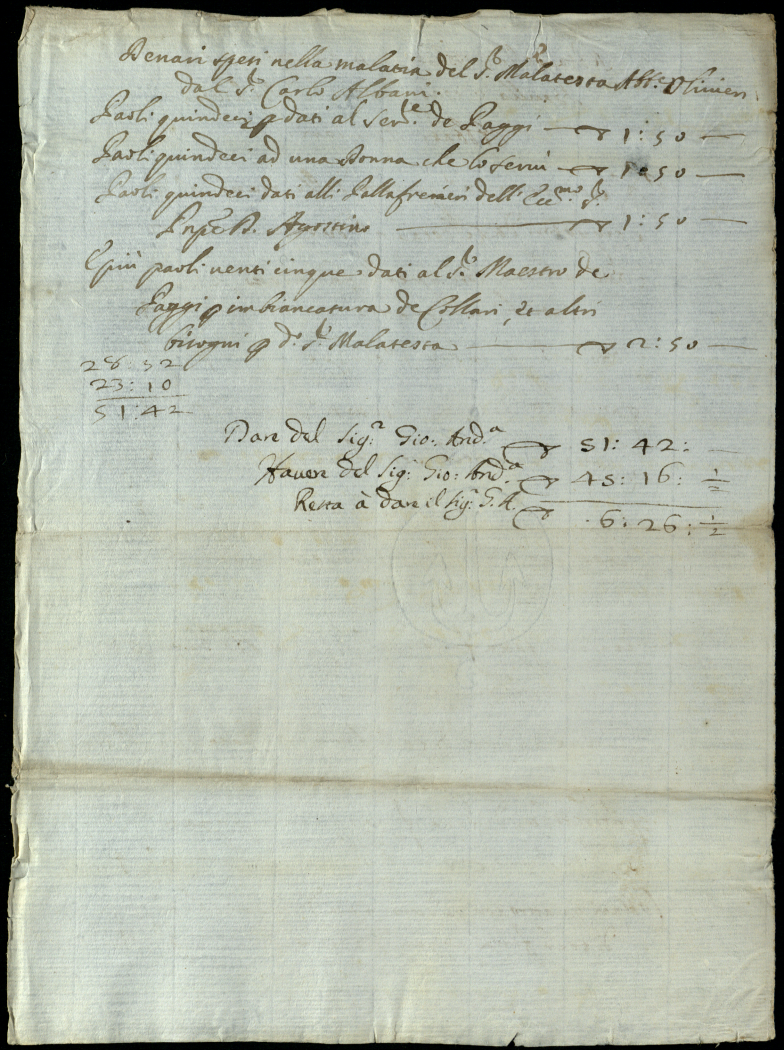 Denari spesi nella malatia del S.r Malatesta Abb.e Olivieri
dal S.r Carlo Albani.
Paoli quindeci p dati al Ser.te de Paggi — 1: 50 —
Paoli quindeci ad una Donna che lo serviì — 1: 50 —
Paoli quindeci dati alli Pallafrenieri dell' Ecc.mo S.r
Pnpe D. Agostino — 1: 50 —
E più paoli venti cinque dati al S.r Maestro de
Paggi p imbiancatura de Collari, et altri
bisogni p d.o S.r Malatesta — 2: 50 —
28: 32
23: 10
51: 42
Dare del Sig.r Gio: And.a 51: 42: —
Havere del Sig.r Gio: And.a 45: 16: 1/2
Resta à dare il Sig.r G. A. 6: 26: 1/2